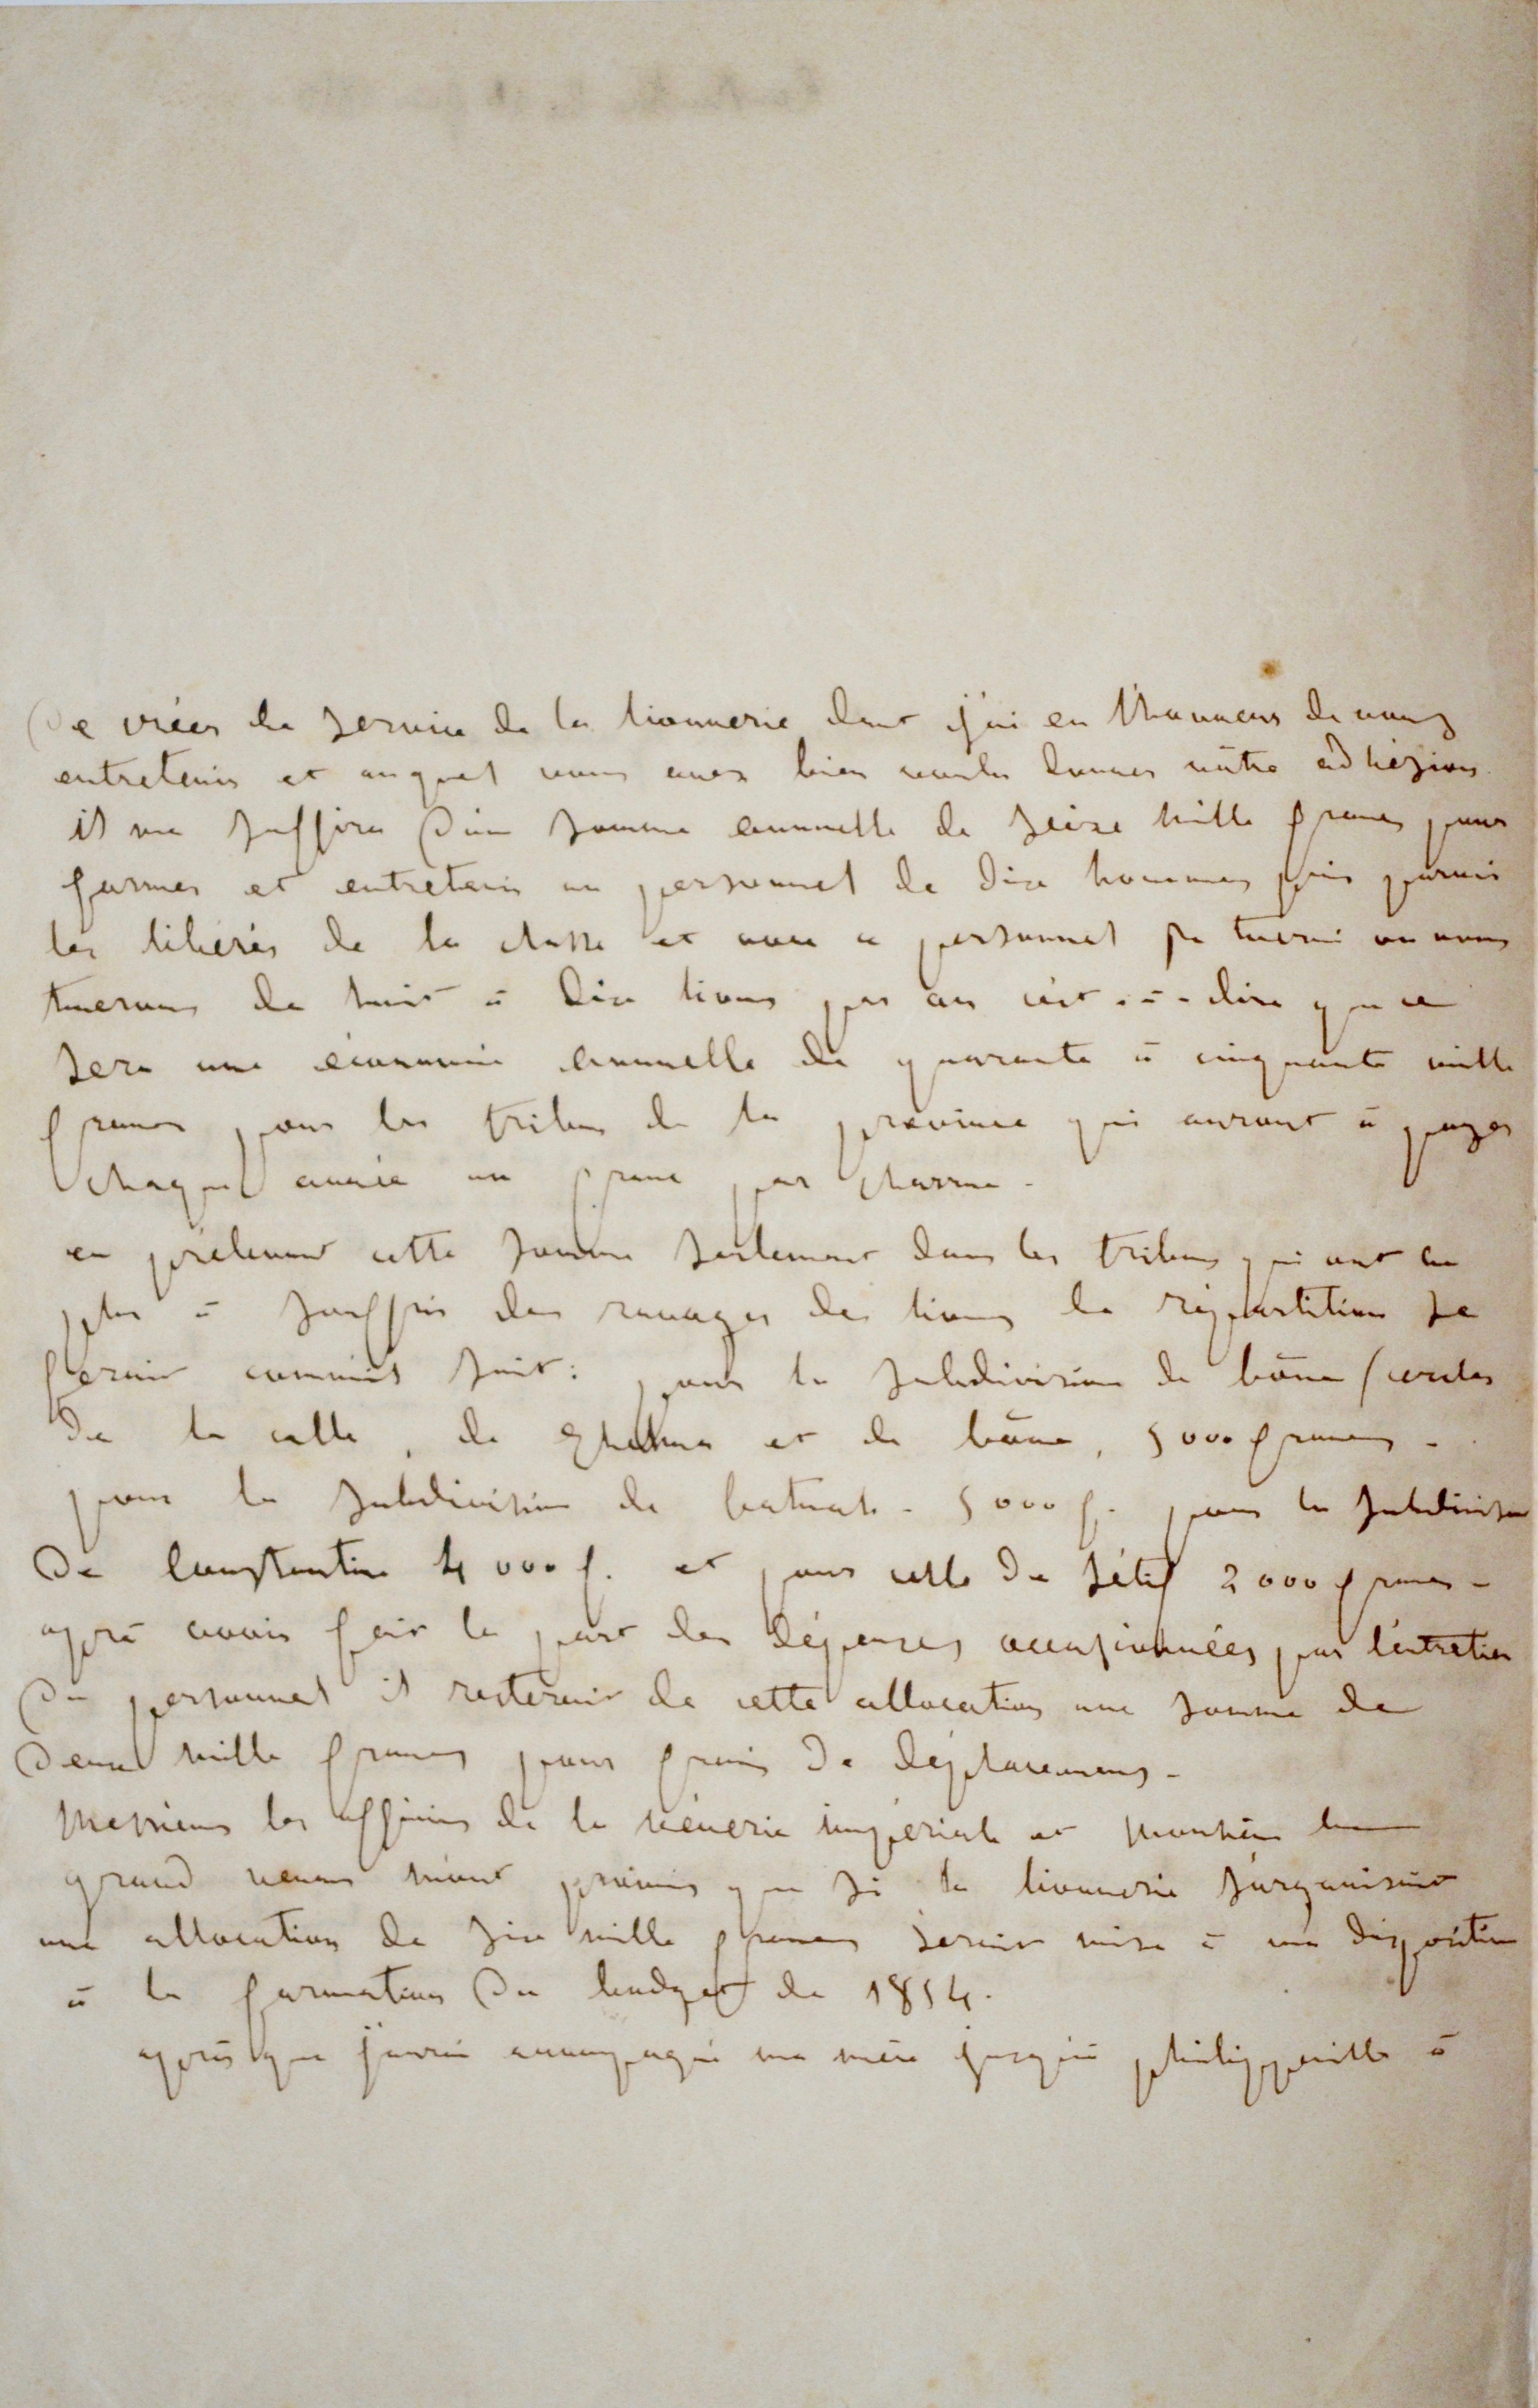 De créer le service de la lionnerie dont j'ai eu l'honneur de vous
entretenir et auquel vous avez bien voulu donner vôtre adhésion.
il me suffira d'une somme annuelle de seize mille francs pour
former et entretenir un personnel de dix hommes pris parmi
les libérés de la classe et avec ce personnel je tuerai ou nous
tuerons de huit à dix lions par an c'est-à-dire que ce
sera une économie annuelle de quarante à cinquante mille
francs pour les tribus de la province qui auront à payer
chaque année un franc par charrue.
en prélevant cette somme seulement dans les tribus qui ont le
plus à souffrir des ravages des lions la répartition se
ferait comme suit: pour la subdivision de bône (cercles
de la calle, de Ghelma et de bône, 5000 francs -
pour la subdivision de batnah - 5000 f. pour la subdivision
De Constantine 4000 f. et pour celle de sétif 2000 francs -
après avoir fait la part des dépenses occasionnées par l'entretien
Du personnel il resterait de cette allocation une somme de
Deux mille francs pour frais de déplacemens -
Messieurs les officiers de la vénerie impériale et monsieur le
grand veneur m'ont promis que si la lionnerie s'organisait
une allocation de six mille francs serait mise à ma disposition
à la formation du budget de 1854.
après que j'aurai accompagné ma mère jusqu'à philippeville à